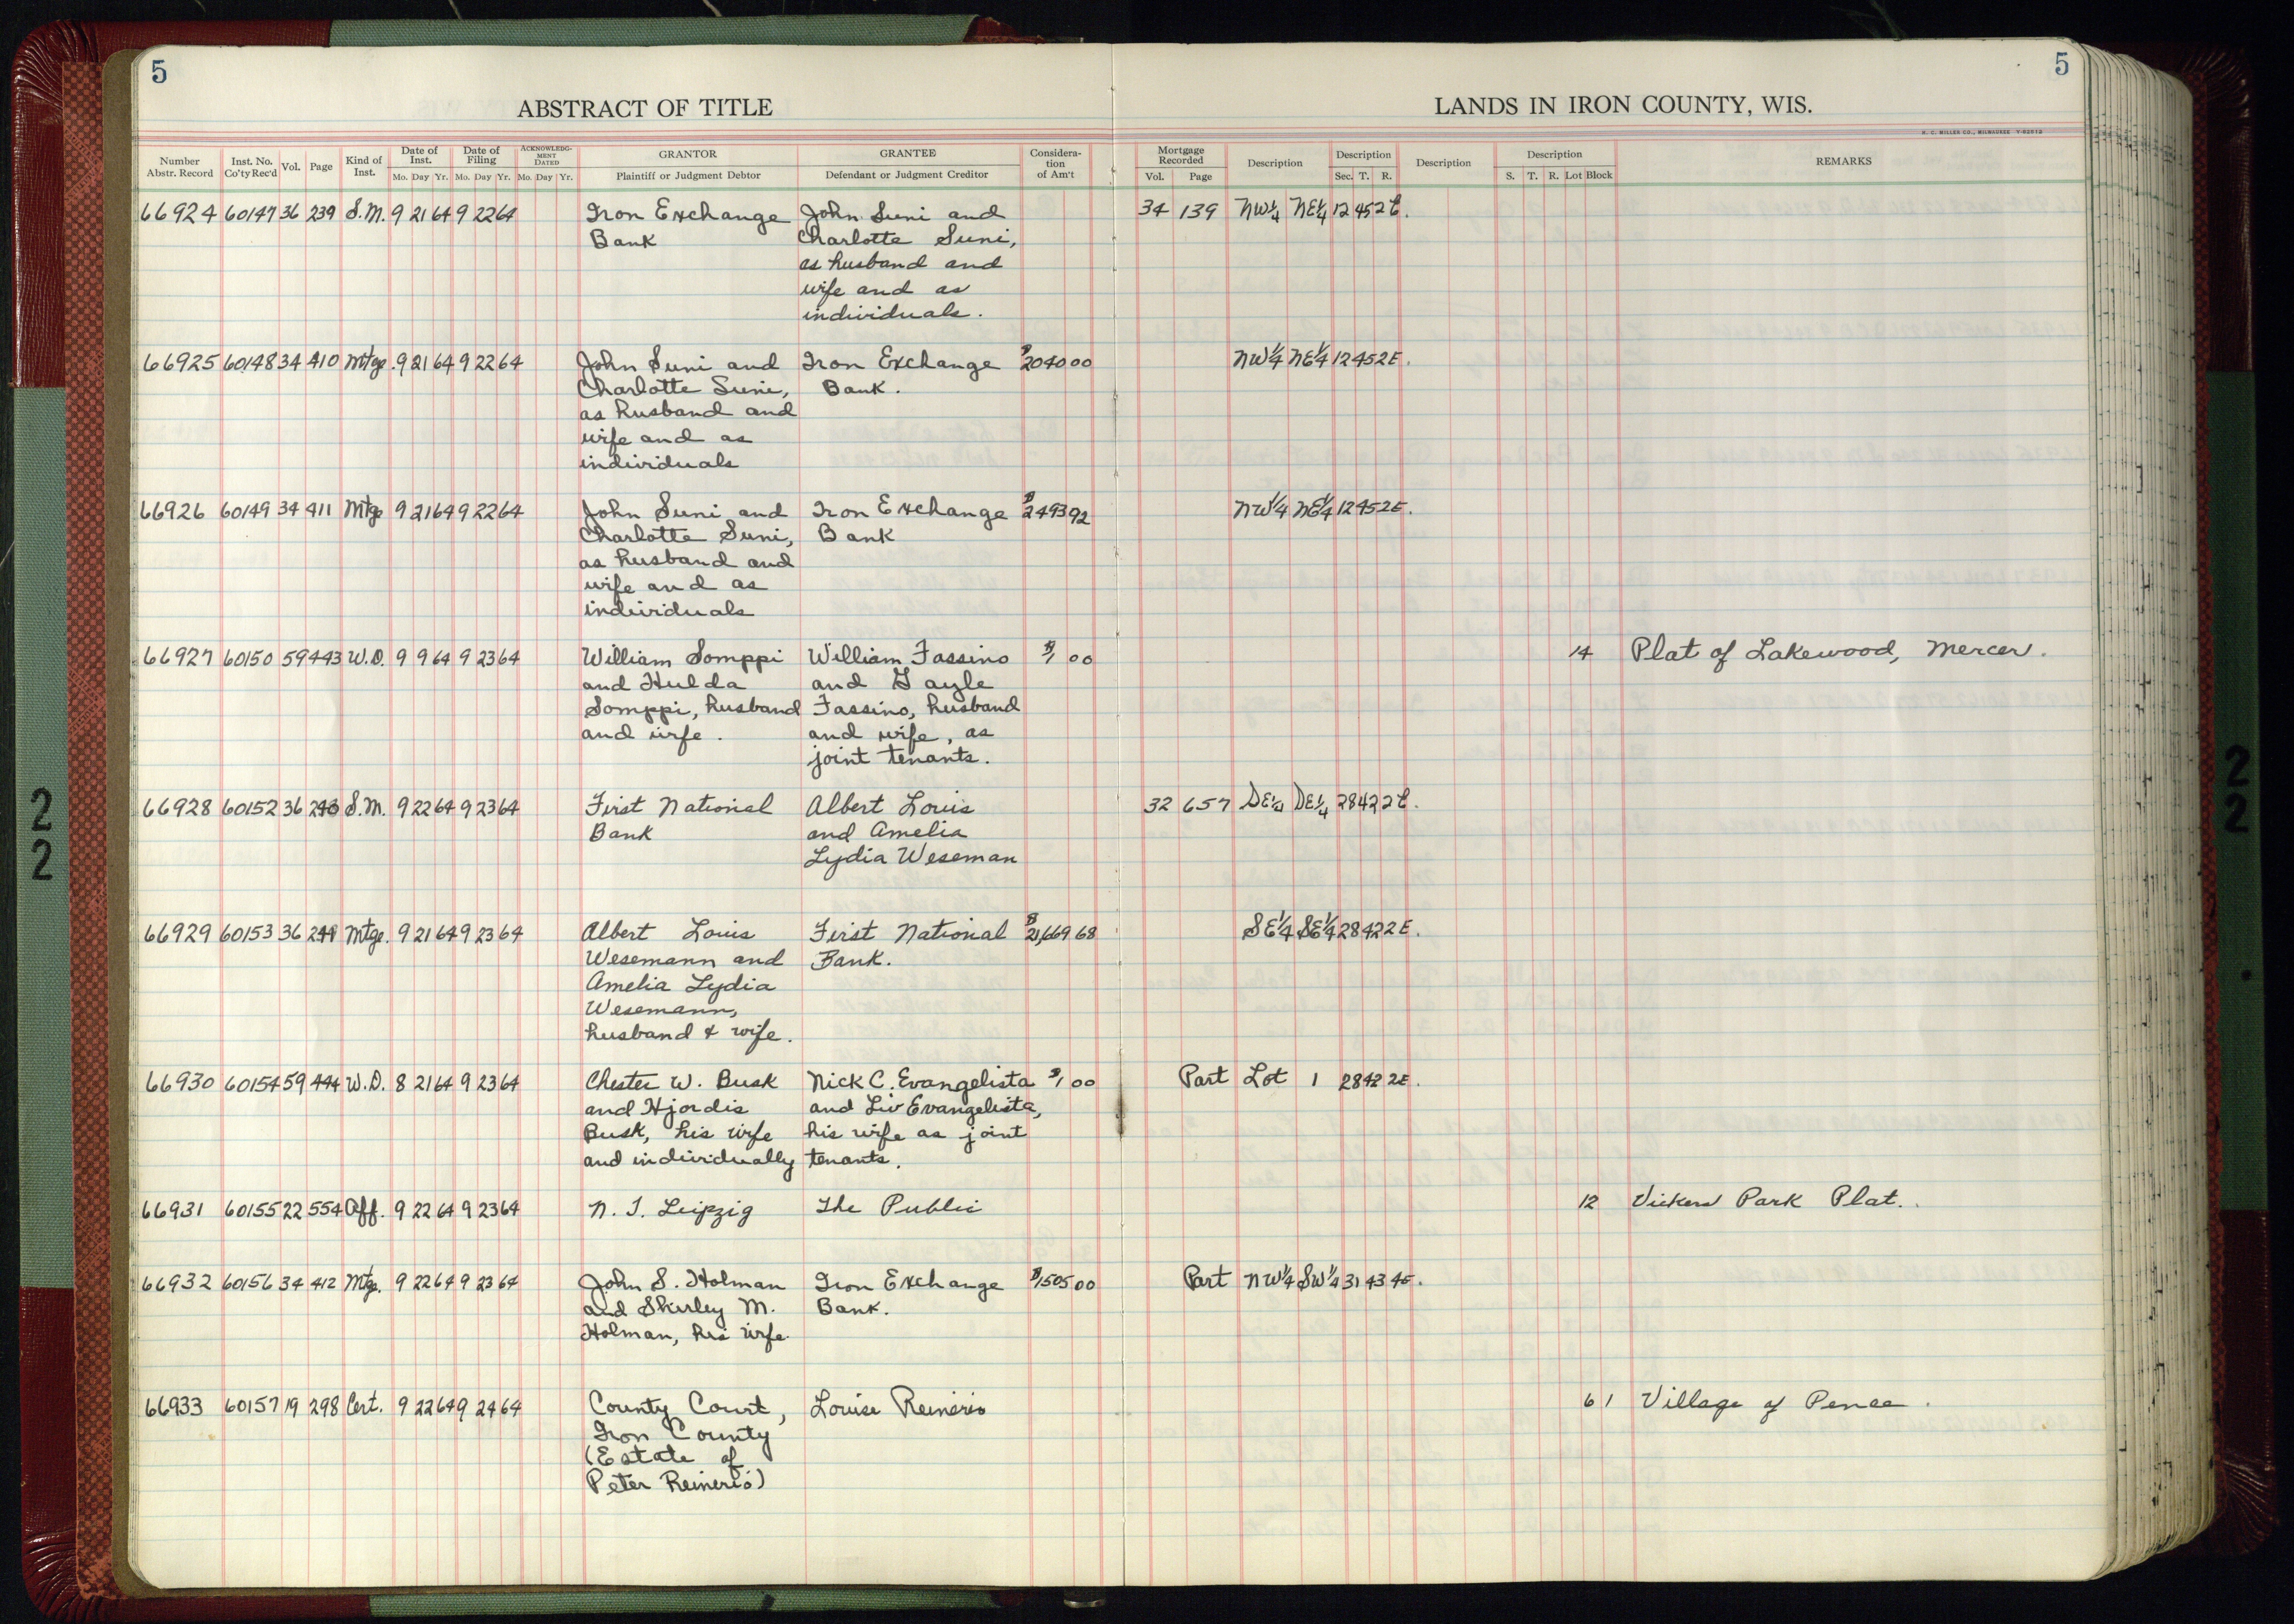 5
5
ABSTRACT OF TITLE
LANDS IN IRON COUNTY, WIS.
H. C. MILLER CO., MILWAUKEE
Number Abstr. Record Inst. No. Co'ty Rec'd Vol. Page Kind of Inst. Date of Inst. Mo. Day Yr. Date of Filing Mo. Day Yr. ACKNOWLEDGMENT DATED Mo. Day Yr. GRANTOR Plaintiff or Judgment Debtor GRANTEE Defendant or Judgment Creditor Consideration of Am't Mortgage Recorded Vol. Page Description Description Sec. T. R. Description Description S. T. R. Lot Block REMARKS
66924 60147 36 239 S.M. 9 21 64 9 22 64 Iron Exchange John Suni and 34 139 NW¼ NE¼ 12 45 2E.
Bank Charlotte Suni,
as husband and
wife and as
individuals.
66925 60148 34 410 Mtge. 9 21 64 9 22 64 John Suni and Iron Exchange $2040 00 NW¼ NE¼ 12 45 2E.
Charlotte Suni, Bank.
as husband and
wife and as
individuals
66926 60149 34 411 Mtge 9 21 64 9 22 64 John Suni and Iron Exchange $2493 92 NW¼ NE¼ 12 45 2E.
Charlotte Suni, Bank
as husband and
wife and as
individuals
66927 60150 59 443 W.D. 9 9 64 9 23 64 William Somppi William Fassino $1 00 14 Plat of Lakewood, Mercer.
and Hulda and Gayle
Somppi, husband Fassino, husband
and wife. and wife, as
joint tenants.
66928 60152 36 S.M. 9 22 64 9 23 64 First National Albert Louis 32 657 SE¼ SE¼ 28 42 2E.
Bank and Amelia
Lydia Weseman
66929 60153 36 Mtge. 9 21 64 9 23 64 Albert Louis First National $21,669 68 SE¼ SE¼ 28 42 2E.
Wesemann and Bank.
Amelia Lydia
Wesemann,
husband & wife.
66930 60154 59 444 W.D. 8 21 64 9 23 64 Chester W. Busk Nick C. Evangelista $1 00 Part Lot 1 28 42 2E.
and Hjordis and Liv Evangelista,
Busk, his wife his wife as joint
and individually tenants.
66931 60155 22 554 Aff. 9 22 64 9 23 64 N. J. Leipzig The Public 12 Vickers Park Plat.
66932 60156 34 412 Mtge. 9 22 64 9 23 64 John S. Holman Iron Exchange $1505 00 Part NW¼ SW¼ 31 43 4E.
and Shirley M. Bank.
Holman, his wife.
66933 60157 19 298 Cert. 9 22 64 9 24 64 County Court, Louise Reinerio 6 1 Village of Pence.
Iron County
(Estate of
Peter Reinerio)
22
22